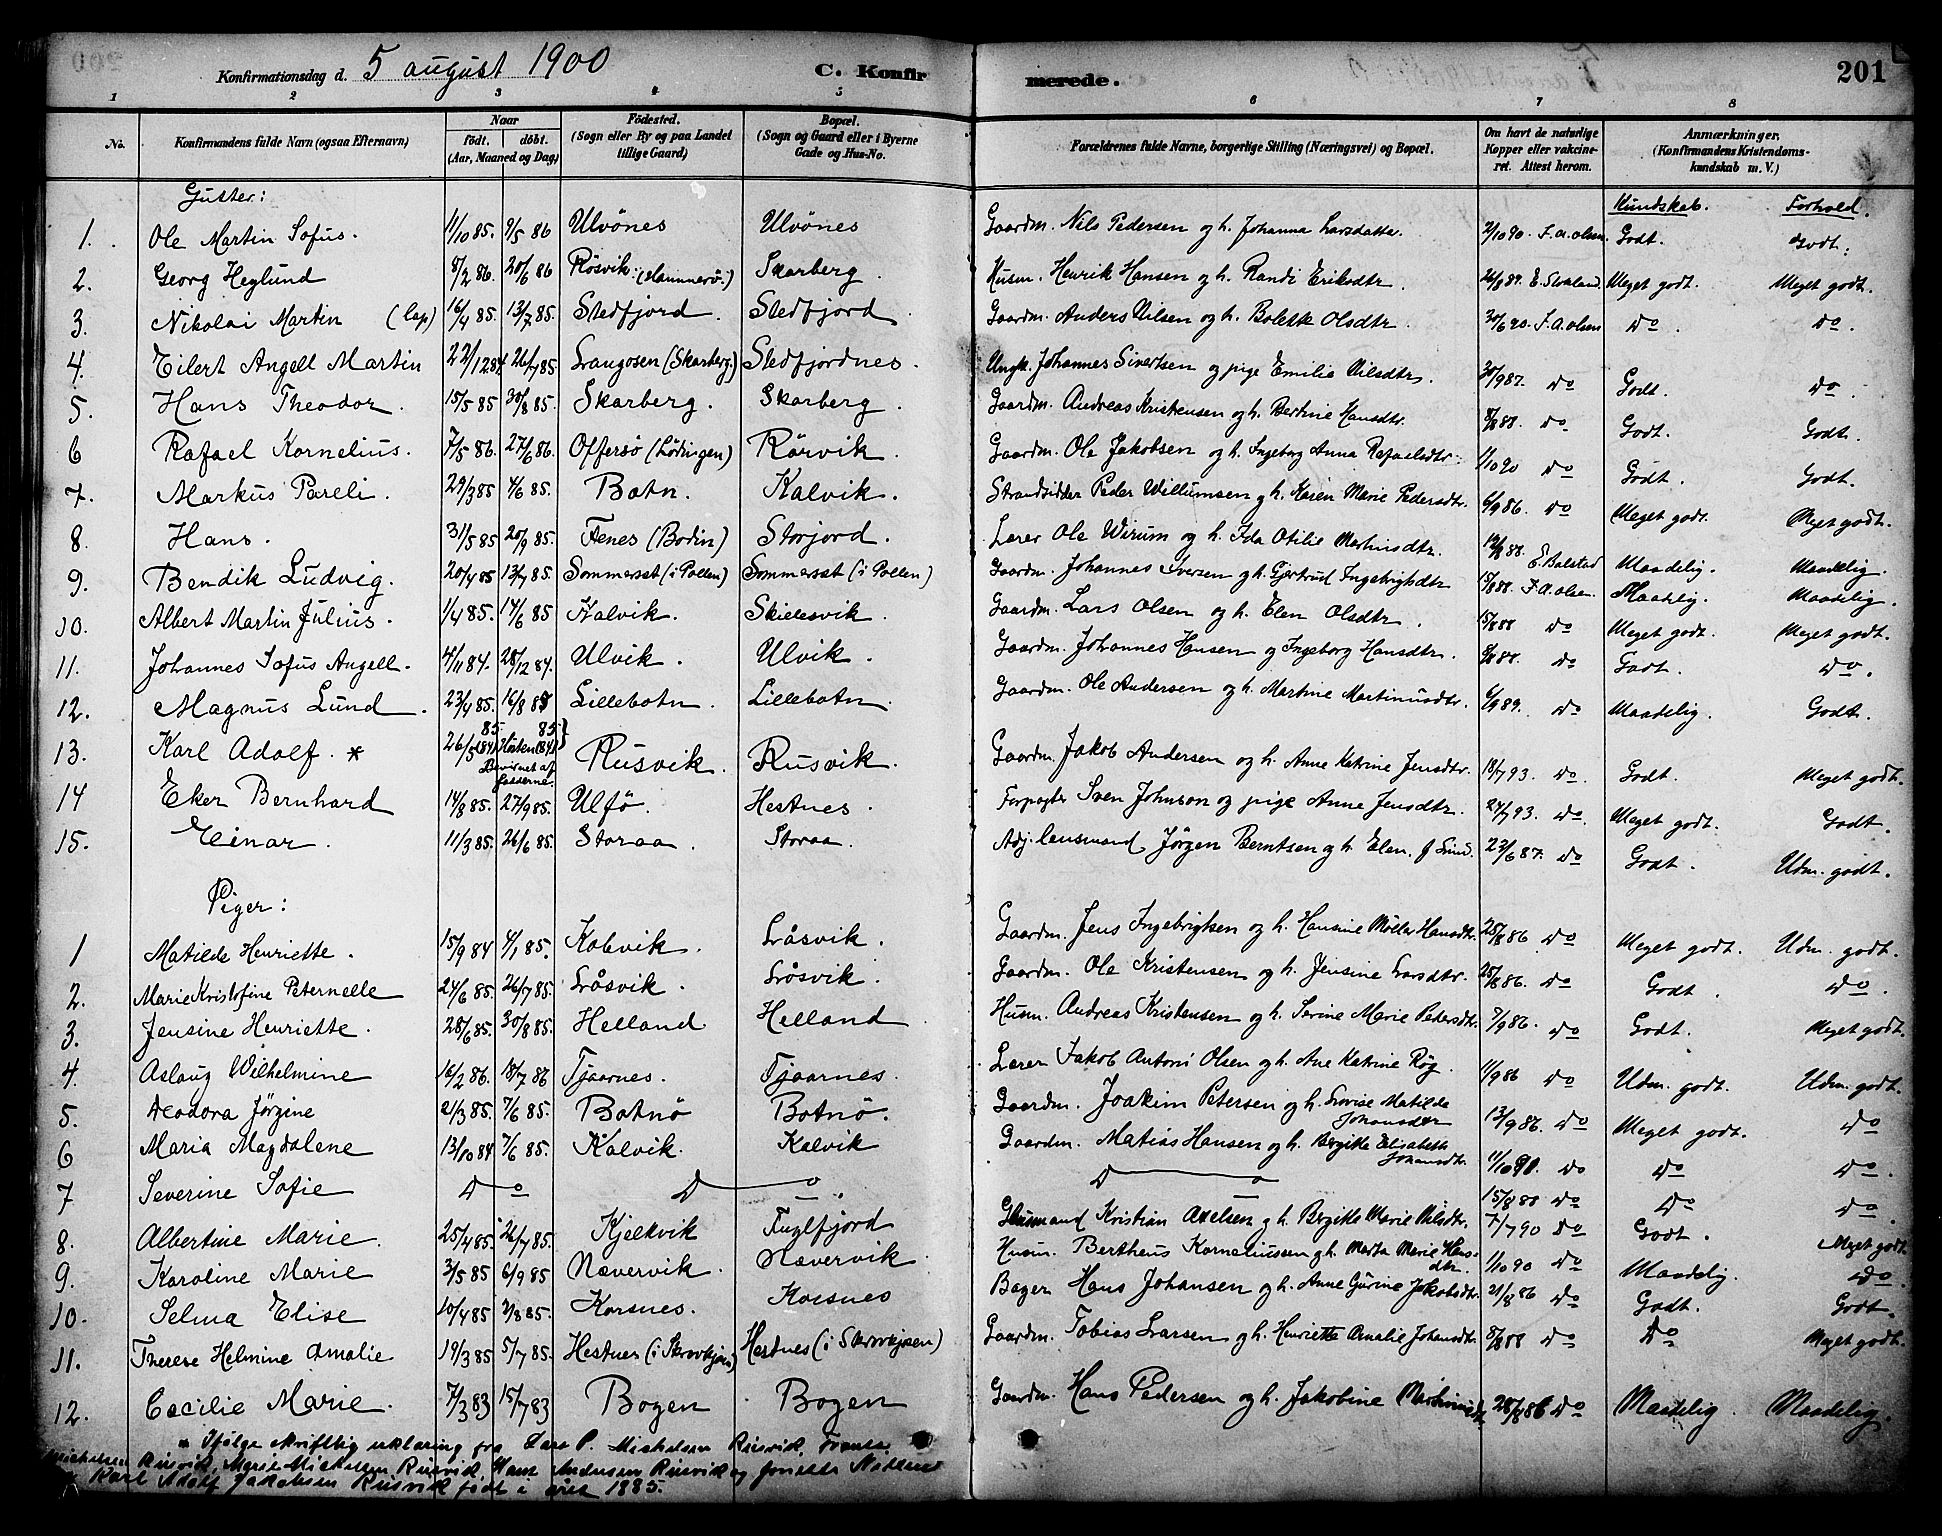 Konfirmationsdag d. 5 august 1900 C. Konfirmerede. 201
1 2 3 4 5 6 7 8
No. Konfirmandens fulde Navn (ogsaa Efternavn) Naar født. døbt. (Aar, Maaned og Dag) Fødested. (Sogn eller By og paa Landet tillige Gaard) Bopæl. (Sogn og Gaard eller i Byerne Gade og Hus-No. Forældrenes fulde Navne, borgerlige Stilling (Næringsvei) og Bopæl. Om havt de naturlige Kopper eller vakcineret. Attest herom. Anmærkninger. (Konfirmandens Kristendomskundskab m. V.)
Gutter: Kundskab. Forhold.
1. Ole Martin Sofus. 11/10 85. 9/5 86 Ulvönes Ulvönes Gaardm. Nils Pedersen og h. Johanna Larsdatter. 2/10 90. F.A. Olsen. Godt. Godt.
2. Georg Heglund 8/2 86. 20/6 86 Rösvik. (Hammerö.) Skarberg. Husm. Henrik Hansen og h. Randi Eriksdtr. 26/8 87. Meget godt. Meget godt.
3. Nikolai Martin (lap) 16/4 85. 13/7 85. Stedfjord. Stedfjord. Gaardm. Anders Nilsen og h. Bolette Olsdtr. 30/6 90. F.A. Olsen do. do.
4. Eilert Angell Martin 22/12 84. 26/7 85 Langosen (Skarberg.) Stedfjordnes. Ungk. Johannes Sivertsen og pige Emilie Nilsdtr. 30/9 87. do Godt. do.
5. Hans Theodor. 15/5 85 30/8 85. Skarberg. Skarberg. Gaardm. Andreas Kristensen og h. Bertine Hansdtr. 8/8 88. do Godt. Godt.
6 Rafael Kornelius. 7/5 86. 27/6 86. Offersö (Lödingen) Rörvik. Gaardm. Ole Jakobsen og h. Ingeborg Anna Rafaelsdtr. 1/10 90 do Godt. Godt.
7. Markus Pareli. 29/3 85 4/6 85. Botn. Kalvik. Strandsidder Peder Willumsen og h. Karen Marie Pedersdtr. 6/9 86. do Meget godt. Meget godt.
8. Hans. 31/5 85 20/9 85. Fenes (Bodin) Storjord. Lærer Ole Wirum og h. Ida Otilie Martinsdtr. 12/8 88. E. Balstad Maadelig. Maadelig.
9. Bendik Ludvig. 20/4 85 13/7 85. Sommerset (i Pollen) Sommerset (i Pollen) Gaardm. Johannes Iversen og h. Gjertrud Ingebrigtsdtr 15/8 88. F.A. Olsen Maadelig. Maadelig.
10. Albert Martin Julius. 1/4 85. 14/6 85 Kalvik. Skielesvik. Gaardm. Lars Olsen og h. Elen Olsdtr. 15/8 88 do Meget godt. Meget godt.
11. Johannes Sofus Angell. 4/11 84. 28/12 84. Ulvik. Ulvik. Gaardm. Johannes Hansen og Ingeborg Hansdtr. 8/8 88. do Godt. do.
12. Magnus Lund. 23/4 85. 16/8 85 Lillebotn. Lillebotn. Gaardm. Ole Andersen og h. Martine Martinusdtr. 6/9 89. do Maadelig. Godt.
13. Karl Adolf. * 26/5 85 (84) Hösten 85 (84) Bevidnet af fadderne Rusvik. Rusvik. Gaardm. Jakob Andersen og h. Anne Katrine Jensdtr. 18/7 93. do. Godt. Meget godt.
14 Eker Bernhard 14/8 85. 27/9 85. Ulfö. Hestnes. Forpagter Sven Johnson og pige Anne Jensdtr. 24/7 93. do. Meget godt. Godt.
15. Einar. 11/3 85. 26/6 85. Storaa Storaa. Adj. lensmand Jörgen Berntsen og h. Elen J Lund. 23/6 87. do Godt. Udm. godt.
Piger:
1 Matilde Henriette. 15/9 84 4/1 85. Kobvik. Sråsvik. Gaardm. Jens Ingebrigtsen og h. Hansine Möller Hansdtr. 25/8 86 do Meget godt. Udm. godt.
2. Marie Kristofine Peternelle 24/6 85. 26/7 85. Sråsvik. Sråsvik. Gaardm. Ole Kristensen og h. Jensine Larsdtr. 25/8 86. do Godt. do.
3. Jensine Henriette. 28/6 85. 30/8 85. Helland Helland Husm. Andreas Kristensen og h. Serine Marie Pedersdtr. 7/9 86. do Godt. Meget godt.
4. Aslaug Wilhelmine 16/2 86. 18/7 86 Tjaarnes. Tjaarnes. Lærer Jakob Antoni Olsen og h. Ane Katrine Rög. 11/9 86 do Udm. godt. Udm. godt.
5. Deodora Jörgine 2/3 85. 7/6 85. Botnö Botnö. Gaardm. Joakim Petersen og h. Lovise Matilde Johansdtr 13/9 86. do Meget godt. do
6 Maria Magdalene 13/10 84 7/6 85. Kalvik. Kalvik Gaardm. Matias Hansen og h. Bergitte Elisabeth Johansdtr. 11/10 90. do do do.
7 Severine Sofie Do Do Do 15/8 88 do do do.
8. Albertine Marie. 25/4 85. 26/7 85. Kjelkvik Fuglfjord Husmand Kristian Axelsen og h. Bergitte Marie Nilsdtr. 7/7 90 do Godt. Meget godt
9. Karoline Marie 3/5 85 6/9 85 Nævervik. Nævervik Husm. Bertheus Korneliussen og h. Marta Marie Hansdtr. 1/10 90 do Maadelig. do.
10. Selma Elise 10/4 85 2/8 85. Korsnes. Korsnes Bager Hans Johansen og h. Anne Gurine Jakobsdtr. 21/8 86 do Godt. Godt.
11. Therese Helmine Amalie 19/3 85 5/7 85. Hestnes (i Skrovkjosen) Hestnes (i Skrovkjosen) Gaardm. Tobias Larsen og h. Henriette Amalie Johansdtr. 8/8 88 do Do Meget godt.
12. Cecilie Marie. 7/3 83 15/7 83 Bogen Bogen Gaardm. Hans Pedersen og h. Jakobine Martinusdtr 28/8 86 do Maadelig. Maadelig.
* Ifølge skriftlig erklæring fra Lars P. Mickelsen Rusvik,
Mickelsen Rusvik, Marie Mickelsen Rusvik, Hans Andersen Rusvik og Jonette
Karl Adolf Jakobsen Rusvik født i året 1885.